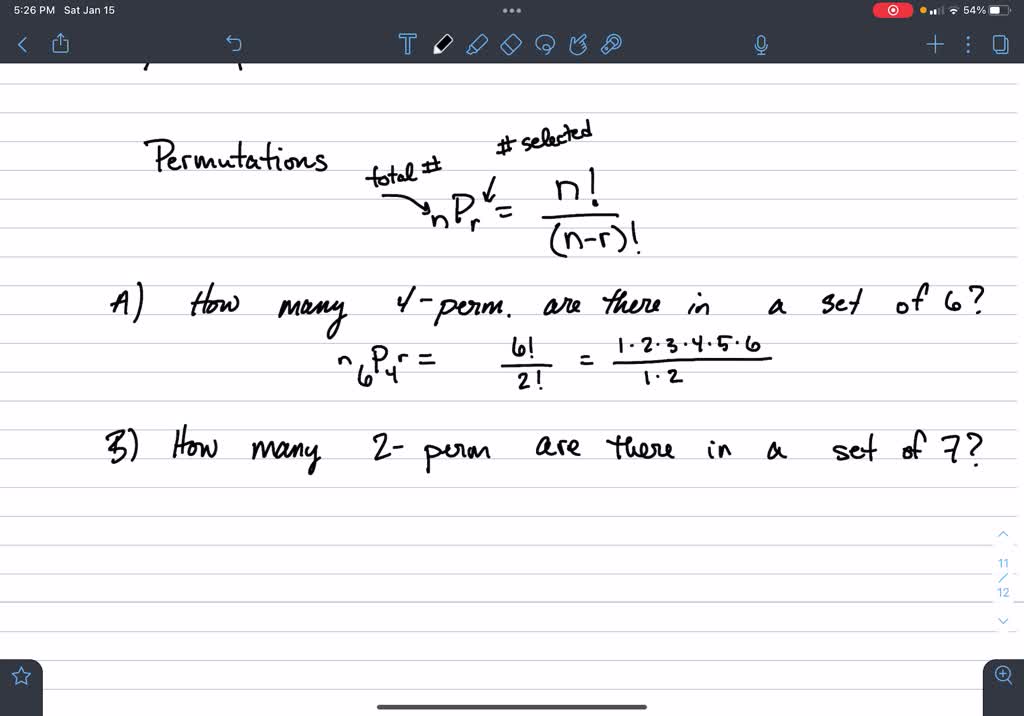 5:26 PM Sat Jan 15
54%
T
# selected
Permutations
total #
nPr = n!
(n-r)!
A) How many 4-perm. are there in a set of 6?
n 6P4 r = 6! = 1·2·3·4·5·6
2! 1·2
B) How many 2-perm are there in a set of 7?
11
12